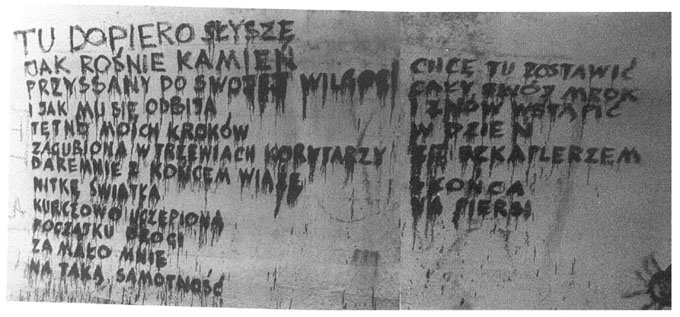 TU DOPIERO SŁYSZĘ
JAK ROŚNIE KAMIEŃ
PRZYSSANY DO SWOJEJ WILGOCI
I JAK MU SIĘ ODBIJA
TĘTNO MOICH KROKÓW
ZAGUBIONA W TRZEWIACH KORYTARZY
DAREMNIE Z KOŃCEM WIĄŻĘ
NITKĘ ŚWIATŁA
KURCZOWO UCZEPIONA
POCZĄTKU DROGI
ZA MAŁO MNIE
NA TAKĄ SAMOTNOŚĆ
CHCĘ TU ZOSTAWIĆ
CAŁY SWÓJ MROK
I ZNÓW WSTĄPIĆ
W DZIEŃ
ZE SZKAPLERZEM
SŁOŃCA
NA PIERSI